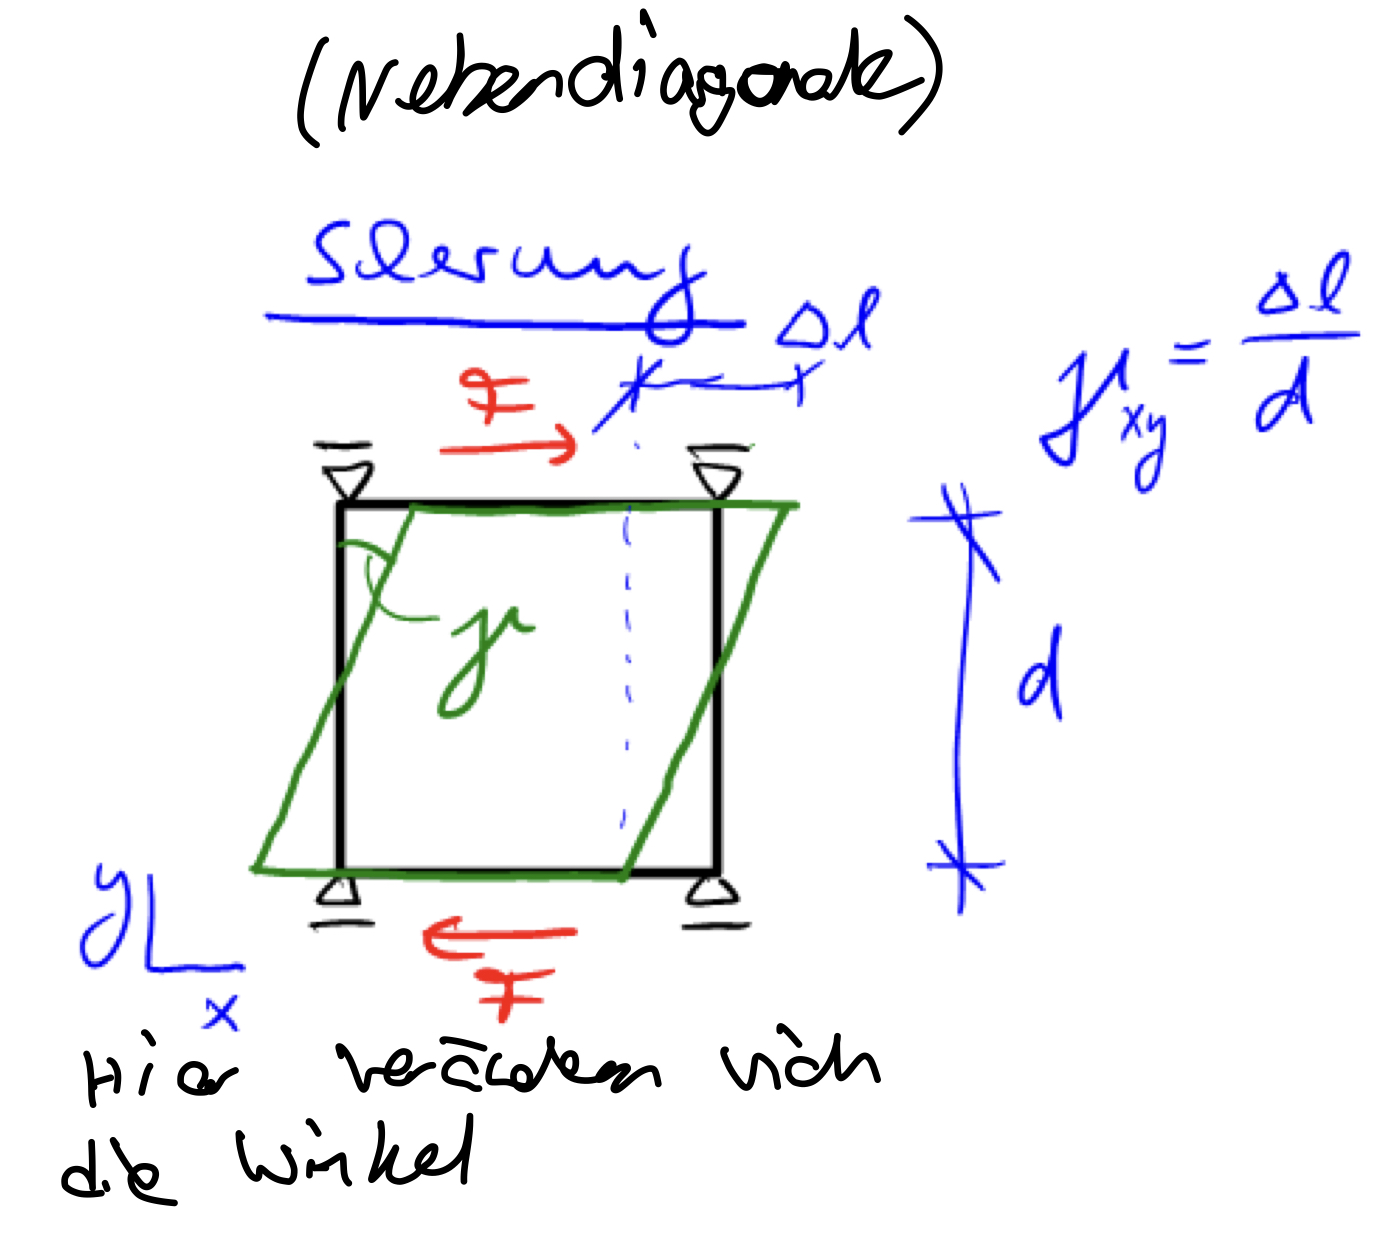 (Nebendiagonale)
Scherung
Δl
γxy = Δl/d
F
γ
d
F
y
x
Hier verändern sich
die Winkel